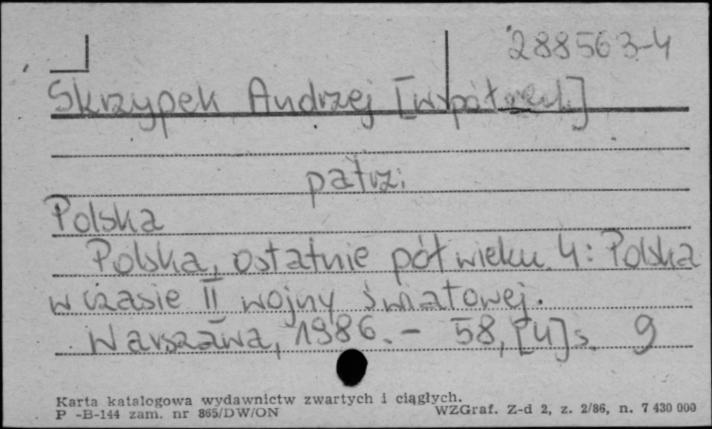 288563-4
Skrzypek Andrzej [współred.]
patrz:
Polska
Polska, ostatnie półwieku. 4: Polska
w czasie II wojny światowej.
Warszawa, 1986. - 58, [4] s. 9
Karta katalogowa wydawnictw zwartych i ciągłych.
P -B-144 zam. nr 865/DW/ON WZGraf. Z-d 2, z. 2/86, n. 7 430 000